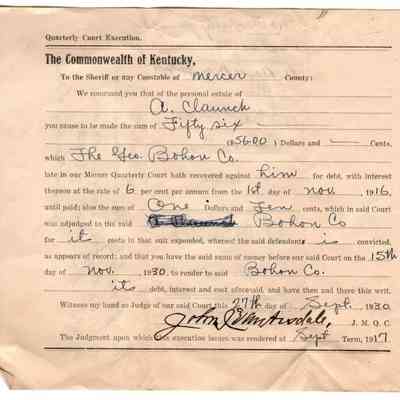 Quarterly Court Execution.
The Commonwealth of Kentucky,
To the Sheriff or any Constable of Mercer County:
We command you that of the personal estate of
A. Claunch
you cause to be made the sum of Fifty six —
($5600) Dollars and — Cents,
which The Geo. Bohon Co.
late in our Mercer Quarterly Court hath recovered against him for debt, with interest
thereon at the rate of 6 per cent per annum from the 1st day of Nov 1916,
until paid; also the sum of One Dollars and Ten cents, which in said Court
was adjudged to the said Bohon Co
for it costs in that suit expended, whereof the said defendant is convicted,
as appears of record; and that you have the said sums of money before our said Court on the 15th
day of Nov. 1930, to render to said Bohon Co.
its debt, interest and cost aforesaid, and have then and there this writ.
Witness my hand as Judge of our said Court this 27th day of Sept. 1930
J. M. Q. C.
The Judgment upon which this execution issues was rendered at Sept Term, 1917.